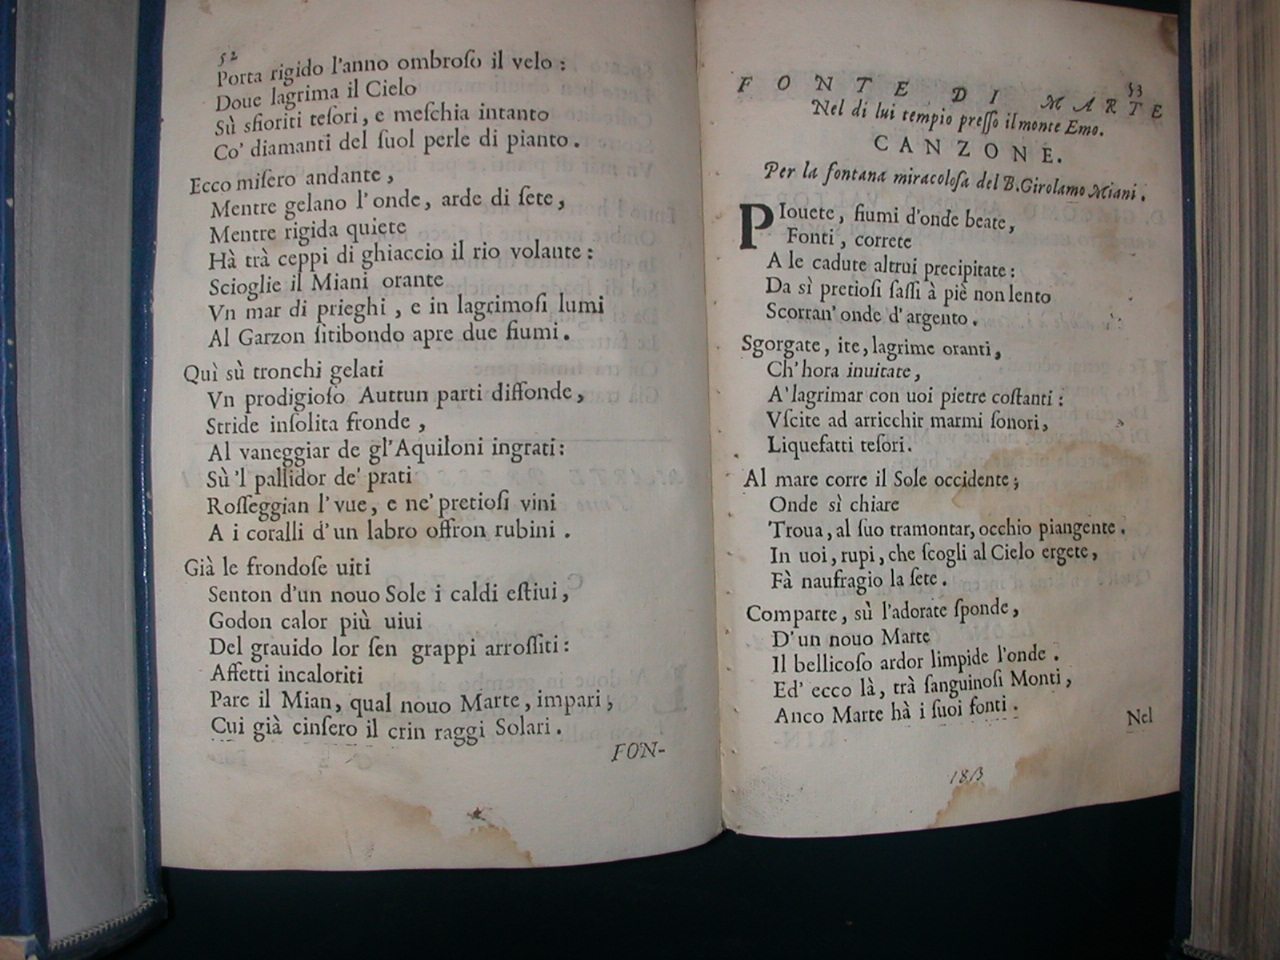 52
Porta rigido l'anno ombroſo il velo :
Doue lagrima il Cielo
Sù sfioriti teſori, e meſchia intanto
Co' diamanti del ſuol perle di pianto .
Ecco miſero andante ,
Mentre gelano l'onde, arde di ſete ,
Mentre rigida quiete
Hà trà ceppi di ghiaccio il rio volante :
Scioglie il Miani orante
Vn mar di prieghi , e in lagrimoſi lumi
Al Garzon ſitibondo apre due fiumi .
Quì sù tronchi gelati
Vn prodigioſo Auttun parti diffonde ,
Stride inſolita fronde ,
Al vaneggiar de gl'Aquiloni ingrati :
Sù 'l pallidor de' prati
Roſſeggian l'vue, e ne' pretioſi vini
A i coralli d'un labro offron rubini .
Già le frondoſe uiti
Senton d'un nouo Sole i caldi eſtiui ,
Godon calor più uiui
Del grauido lor ſen grappi arroſſiti :
Affetti incaloriti
Pare il Mian, qual nouo Marte, impari ,
Cui già cinſero il crin raggi Solari .
FON-
53
FONTE DI MARTE
Nel di lui tempio preſſo il monte Emo.
CANZONE.
Per la fontana miracoloſa del B. Girolamo Miani .
PIouete, fiumi d'onde beate,
Fonti, correte
A le cadute altrui precipitate :
Da sì pretioſi ſaſſi à piè non lento
Scorran' onde d'argento .
Sgorgate, ite, lagrime oranti ,
Ch'hora inuitate ,
A' lagrimar con uoi pietre coſtanti :
Vſcite ad arricchir marmi ſonori ,
Liquefatti teſori .
Al mare corre il Sole occidente ;
Onde sì chiare
Troua, al ſuo tramontar, occhio piangente .
In uoi, rupi, che ſcogli al Cielo ergete ,
Fà naufragio la ſete .
Comparte, sù l'adorate ſponde ,
D'un nouo Marte
Il bellicoſo ardor limpide l'onde .
Ed' ecco là, trà ſanguinoſi Monti ,
Anco Marte hà i ſuoi fonti .
Nel
18/3